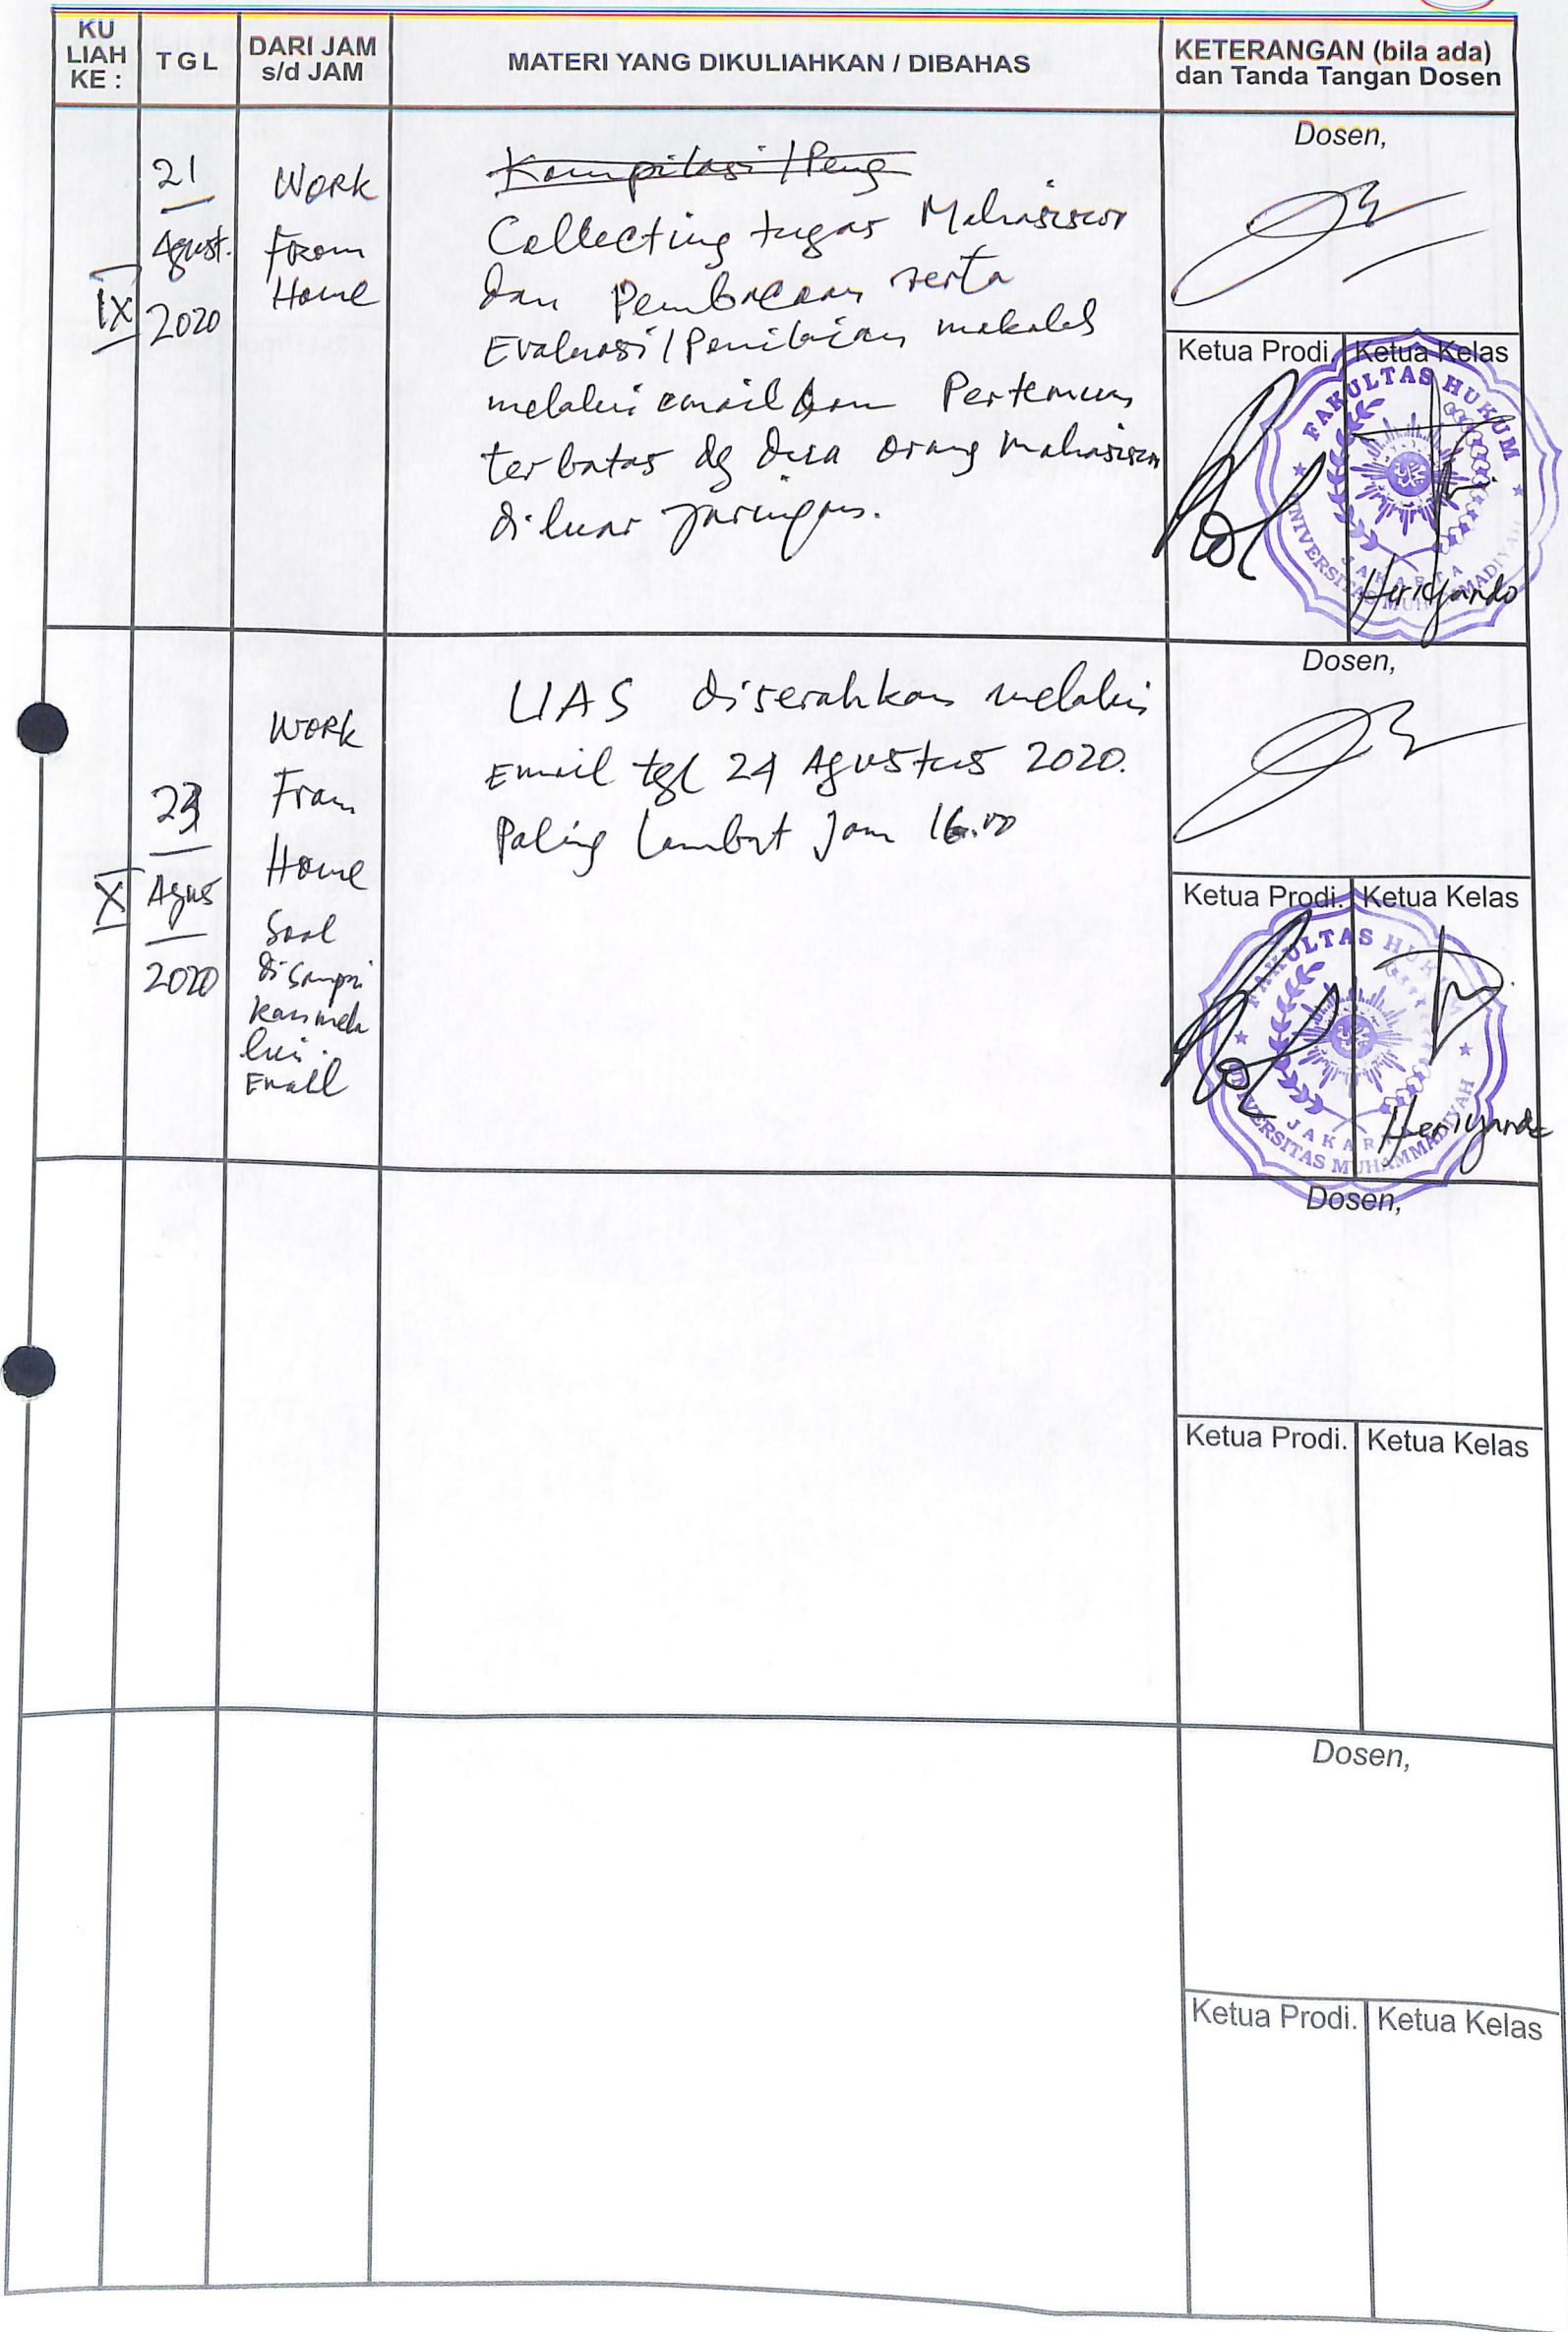 KU
LIAH
KE :
TGL
DARI JAM
s/d JAM
MATERI YANG DIKULIAHKAN / DIBAHAS
KETERANGAN (bila ada)
dan Tanda Tangan Dosen
IX
21
Agust.
2020
WORK
From
Home
Kompilasi / Peng
Collecting tugas Mahasiswa
dan Pembacaan serta
Evaluasi / Penilaian makalah
melalui email dan Pertemuan
terbatas dg dua orang mahasiswa
diluar jaringan.
Dosen,
Ketua Prodi.
Ketua Kelas
FAKULTAS HUKUM
UNIVERSITAS MUHAMMADIYAH
JAKARTA
Heriyando
X
23
Agus
2020
WORK
From
Home
Soal
disampai
kan mela
lui
Email
UAS diserahkan melalui
Email tgl 24 Agustus 2020.
Paling lambat Jam 16.00
Dosen,
Ketua Prodi.
Ketua Kelas
FAKULTAS HUKUM
UNIVERSITAS MUHAMMADIYAH
JAKARTA
Heriyando
Dosen,
Ketua Prodi.
Ketua Kelas
Dosen,
Ketua Prodi.
Ketua Kelas